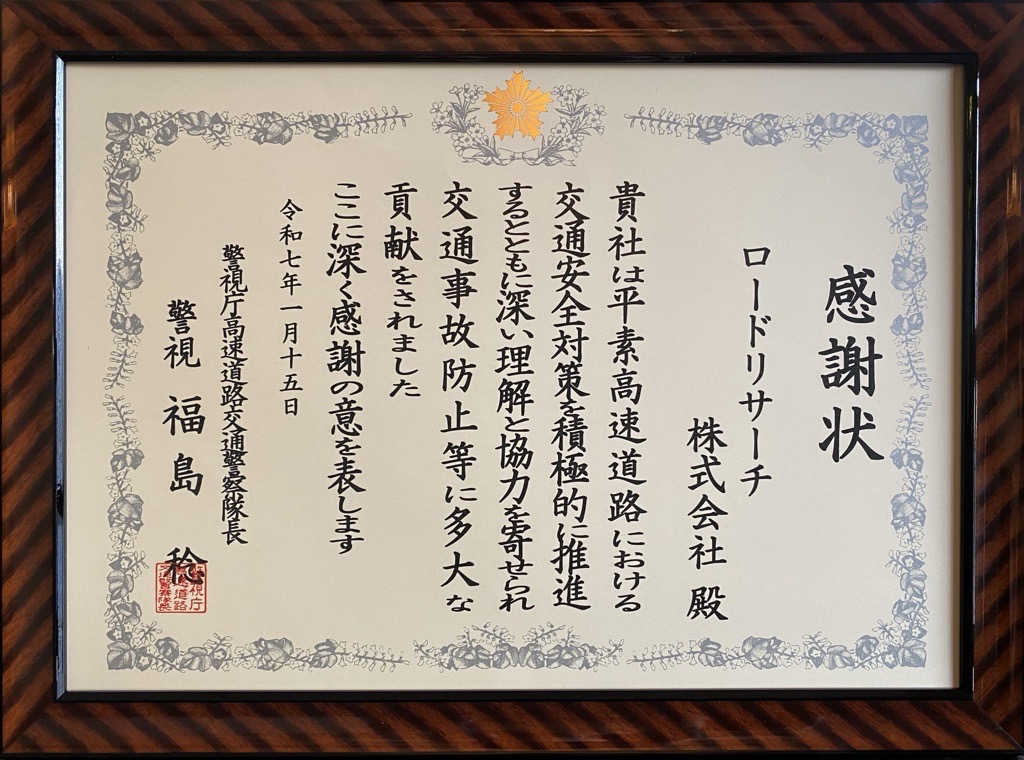 感謝状
ロードリサーチ
株式会社 殿
貴社は平素高速道路における
交通安全対策を積極的に推進
するとともに深い理解と協力を寄せられ
交通事故防止等に多大な
貢献をされました
ここに深く感謝の意を表します
令和七年一月十五日
警視庁高速道路交通警察隊長
警視 福島 稔